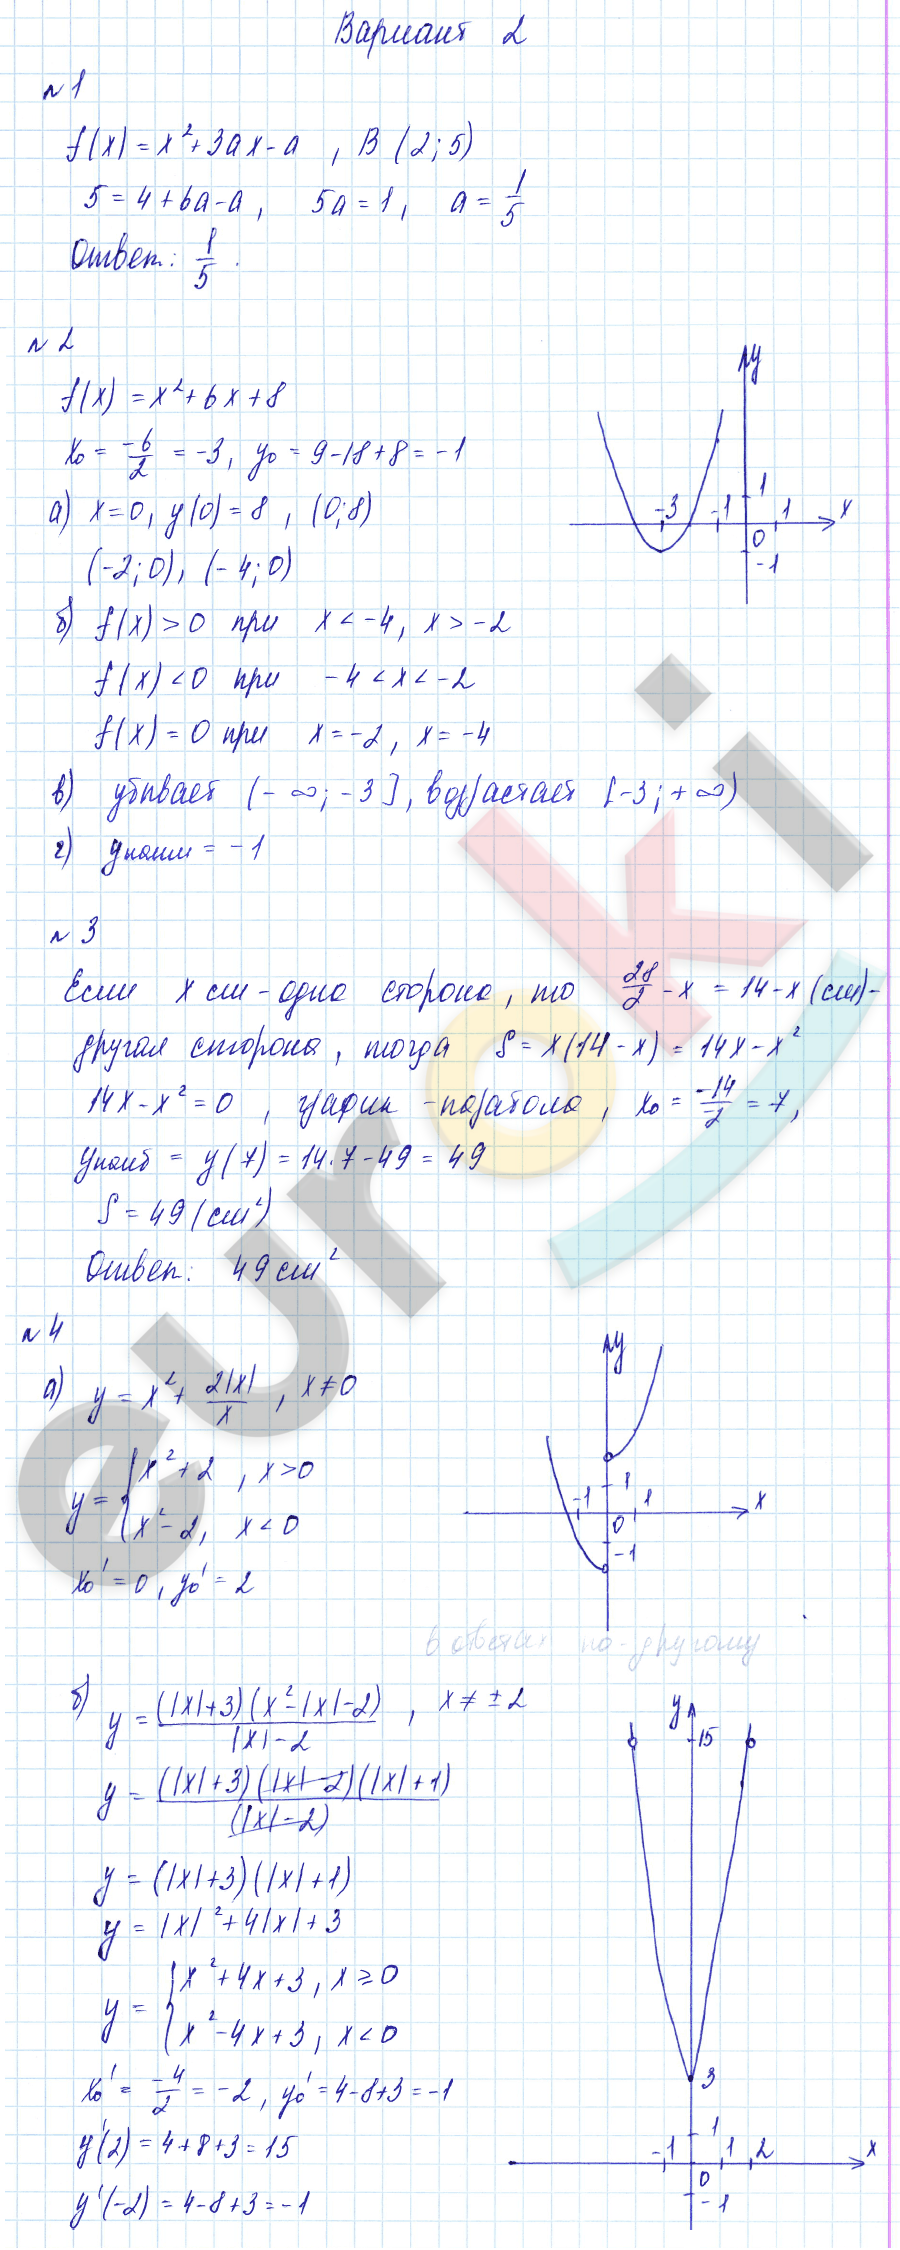 Вариант 2
n 1
f(x) = x² + 3ax - a , B (2; 5)
5 = 4 + 6a - a , 5a = 1 , a = 1/5
Ответ: 1/5 .
n 2
f(x) = x² + 6x + 8
x₀ = -6/2 = -3, y₀ = 9 - 18 + 8 = -1
а) x = 0, y(0) = 8 , (0; 8)
(-2; 0), (-4; 0)
y
1
-3 -1 1 x
0
-1
б) f(x) > 0 при x < -4, x > -2
f(x) < 0 при -4 < x < -2
f(x) = 0 при x = -2, x = -4
в) убывает (-∞; -3], возрастает [-3; +∞)
г) yнаим = -1
n 3
Если x см - одна сторона, то 28/2 - x = 14 - x (см) -
другая сторона, тогда S = x(14 - x) = 14x - x²
14x - x² = 0 , график - парабола, x₀ = -14/-2 = 7,
yнаиб = y(7) = 14·7 - 49 = 49
S = 49 (см²)
Ответ: 49 см²
n 4
а) y = x² + 2|x|/x , x ≠ 0
y = { x² + 2 , x > 0
x² - 2, x < 0
x₀' = 0, y₀' = 2
y
1
-1 1 x
0
-1
в ответах по-другому
б) y = (|x|+3)(x²-|x|-2)/|x|-2 , x ≠ ±2
y = (|x|+3)(|x|-2)(|x|+1)/(|x|-2)
y = (|x|+3)(|x|+1)
y = |x|² + 4|x| + 3
y = { x² + 4x + 3, x ≥ 0
x² - 4x + 3, x < 0
x₀' = -4/2 = -2, y₀' = 4 - 8 + 3 = -1
y'(2) = 4 + 8 + 3 = 15
y'(-2) = 4 - 8 + 3 = -1
y
15
3
1
-1 1 2 x
0
-1
euroki